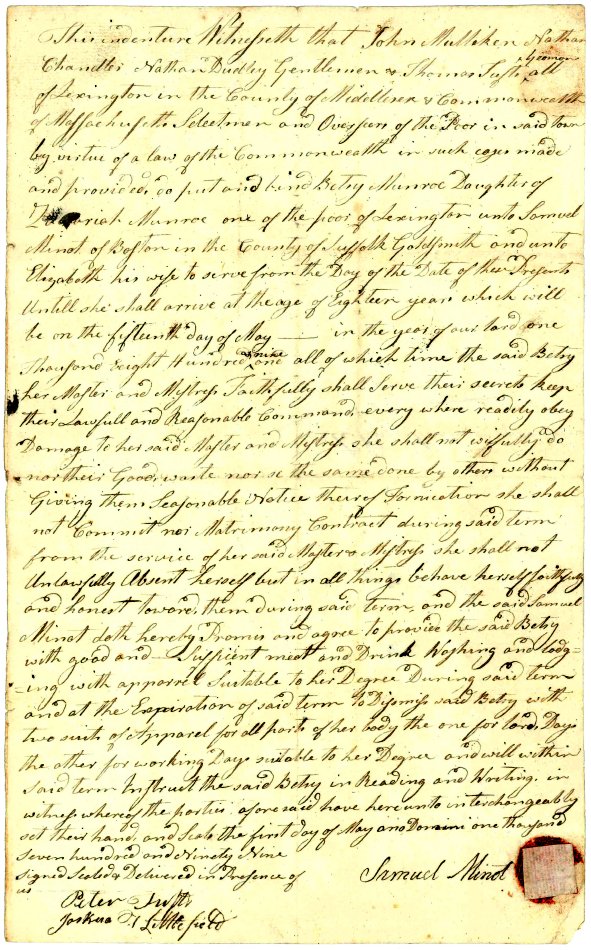 This indenture Witnesseth that John Mulliken Nathan
Chandler Nathan Dudley Gentlemen & Thomas Tufts Yeoman all
of Lexington in the County of Middlesex & Commonwealth
of Massachusetts Selectmen and Overseers of the Poor in said town
by virtue of a law of the Commonwealth in such cases made
and provided, do put and bind Betsy Munroe Daughter of
Zachariah Munroe one of the poor of Lexington unto Samuel
Minot of Boston in the County of Suffolk Goldsmith and unto
Elizabeth his wife to serve from the Day of the Date of these Presents
Untill she shall arrive at the age of Eighteen years which will
be on the fifteenth day of May — in the year of our lord one
Thousand Eight Hundred and nine all of which time the said Betsy
her Master and Mistress Faithfully shall Serve their secrets keep
their Lawfull and Reasonable Commands every where readily obey
Damage to her said Master and Mistress she shall not wilfully do
nor their Goods waste nor se the same done by others without
Giving them Seasonable Notice thereof Fornication she shall
not Commit nor Matrimony Contract during said term
from the service of her said Master & Mistress she shall not
Unlawfully Absent herself but in all things behave herself faithfully
and honest towards them during said term, and the said Samuel
Minot doth hereby Promis and agree to provide the said Betsy
with good and — Sufficient meat and Drink Washing and lodg-
-ing with apparrel Suitable to her Degree During said term
and at the Expiration of said term to Dismiss said Betsy with
two suits of Apparel for all parts of her body the one for lords Days
the other for working Days suitable to her Degree and will within
said term Instruct the said Betsy in Reading and Writing. in
witness whereof the parties aforesaid have hereunto interchangeably
set their hands and Seals the first day of May anno Domini one thousand
seven hundred and Ninety Nine
signed Sealed & Delivered in Presence of
us
Samuel Minot
Peter Tufts
Joshua T Littlefield